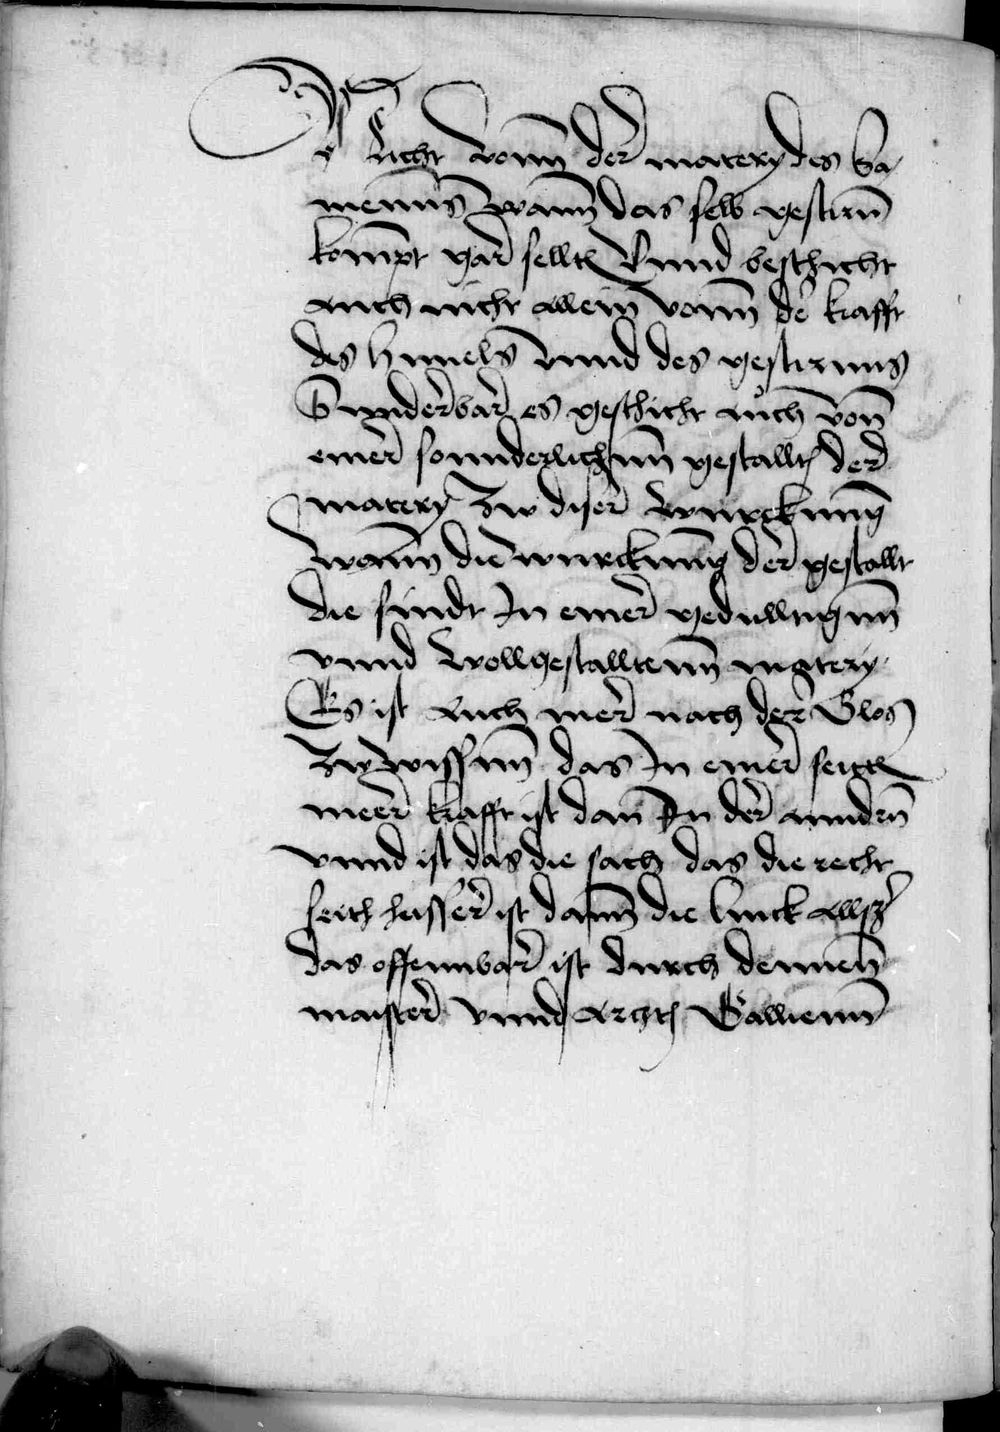 Nicht vonn der matery des Sa
mennß wann das selb gestirn
kompt gar sellten Vnnd beschicht
auch nicht allein vonn der krafft
des himels vnnd des gestirnns
Sunderbar es geschicht auch von
einer sonnderlichenn gestallt der
matery zw diser wurckung
wann die wurckung der gestallt
die sindt In einer gedulltigenn
vnnd wollgestalltenn matery
Es ist Auch mer nach der Glos
zwwissenn das In einer seitten
meer krafft ist dan In der anndern
vnnd ist das die sach das die recht
seith heisser ist dann die linck Allß
das offennbar ist durch dennen
maister vnnd Arczt Gallienn